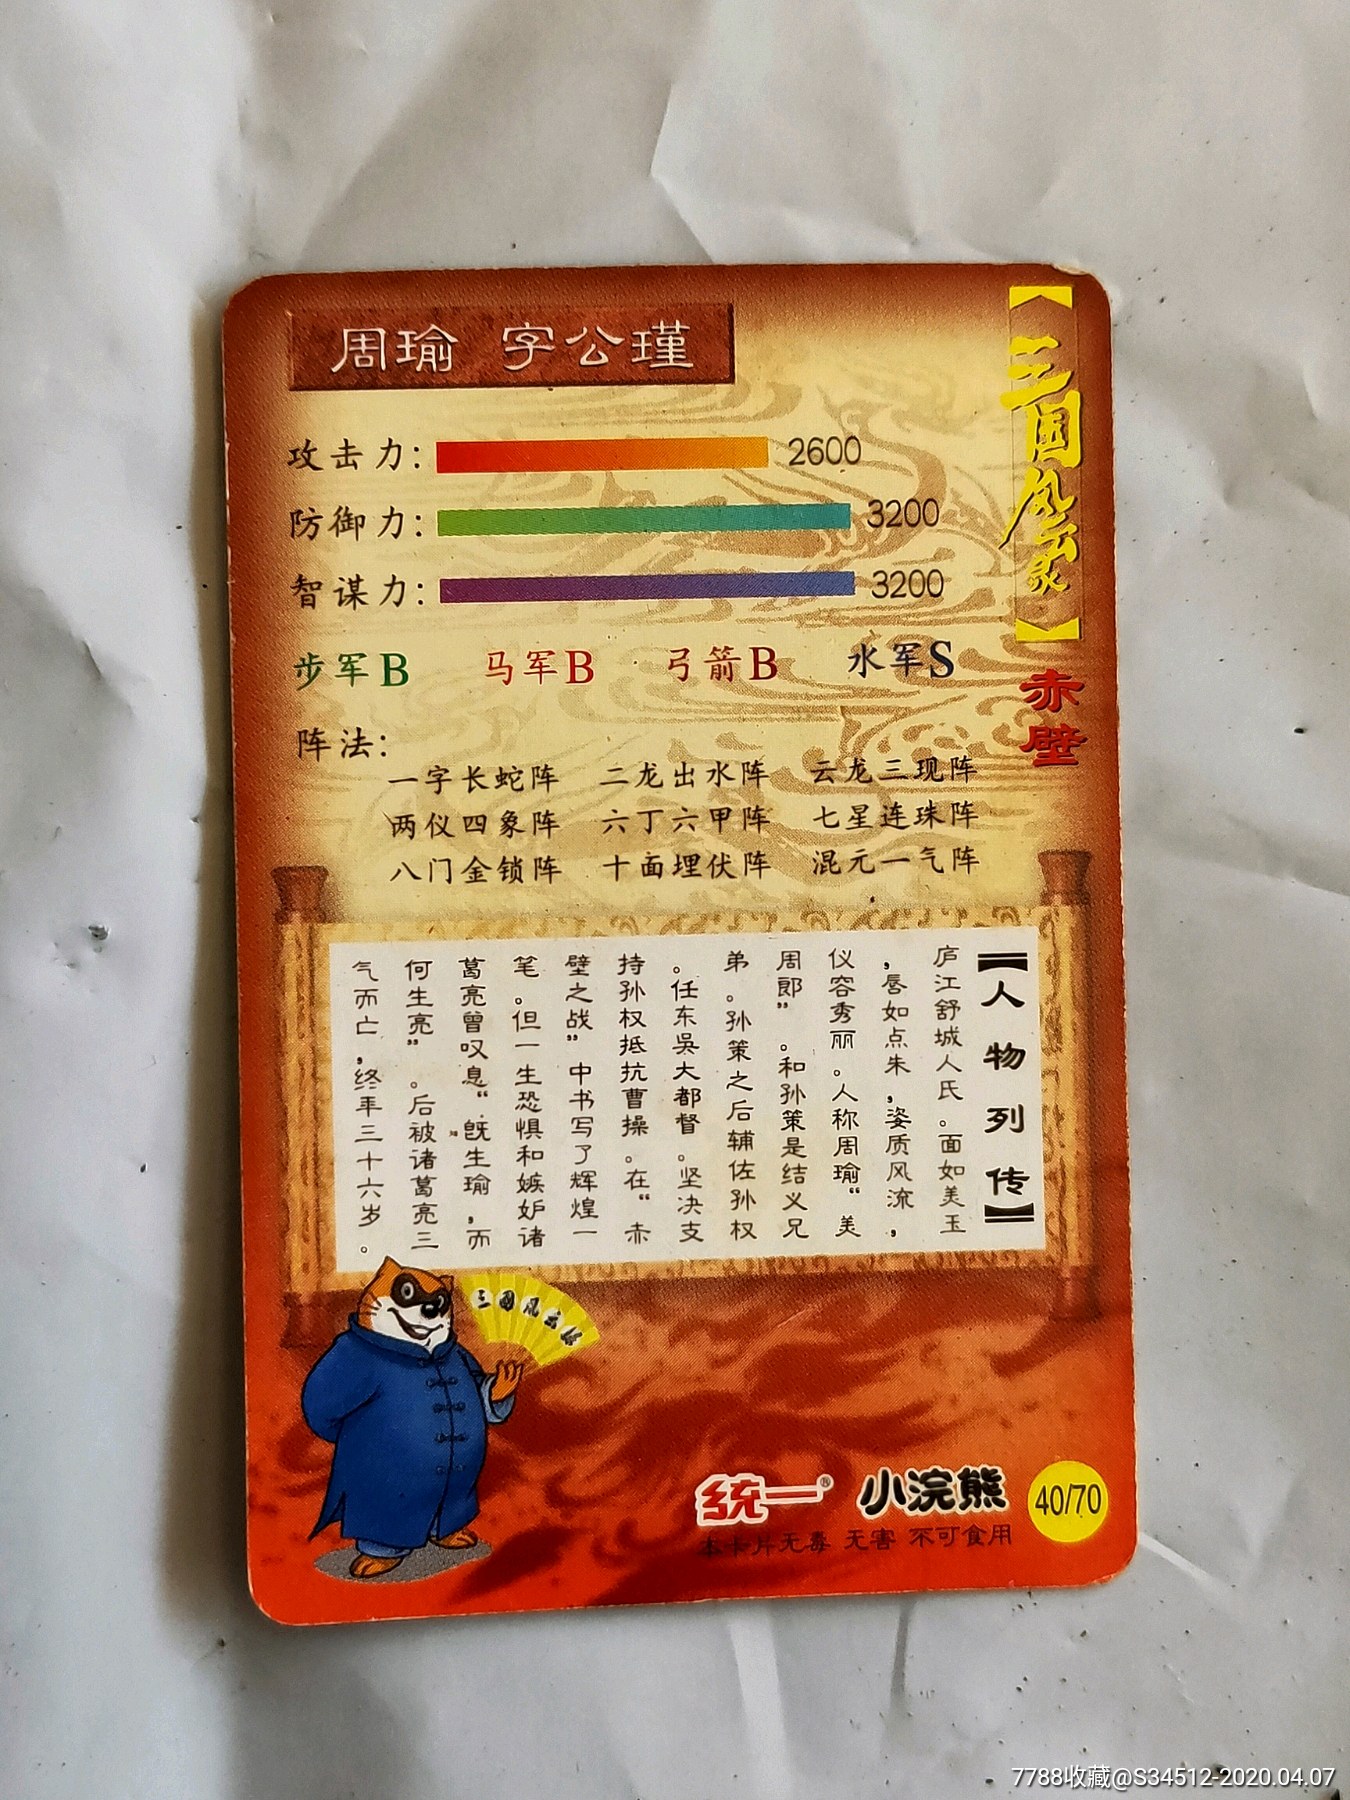 周瑜 字公瑾
【三国风云录】
赤壁
攻击力: 2600
防御力: 3200
智谋力: 3200
步军B 马军B 弓箭B 水军S
阵法:
一字长蛇阵 二龙出水阵 云龙三现阵
两仪四象阵 六丁六甲阵 七星连珠阵
八门金锁阵 十面埋伏阵 混元一气阵
【人物列传】
庐江舒城人氏。面如美玉
,唇如点朱,姿质风流,
仪容秀丽。人称周瑜“美
周郎”。和孙策是结义兄
弟。孙策之后辅佐孙权
。任东吴大都督。坚决支
持孙权抵抗曹操。在“赤
壁之战”中书写了辉煌一
笔。但一生恐惧和嫉妒诸
葛亮曾叹息“既生瑜,而
何生亮”。后被诸葛亮三
气而亡,终年三十六岁。
三国风云录
统一® 小浣熊
40/70
本卡片无毒 无害 不可食用
7788收藏@S34512-2020.04.07